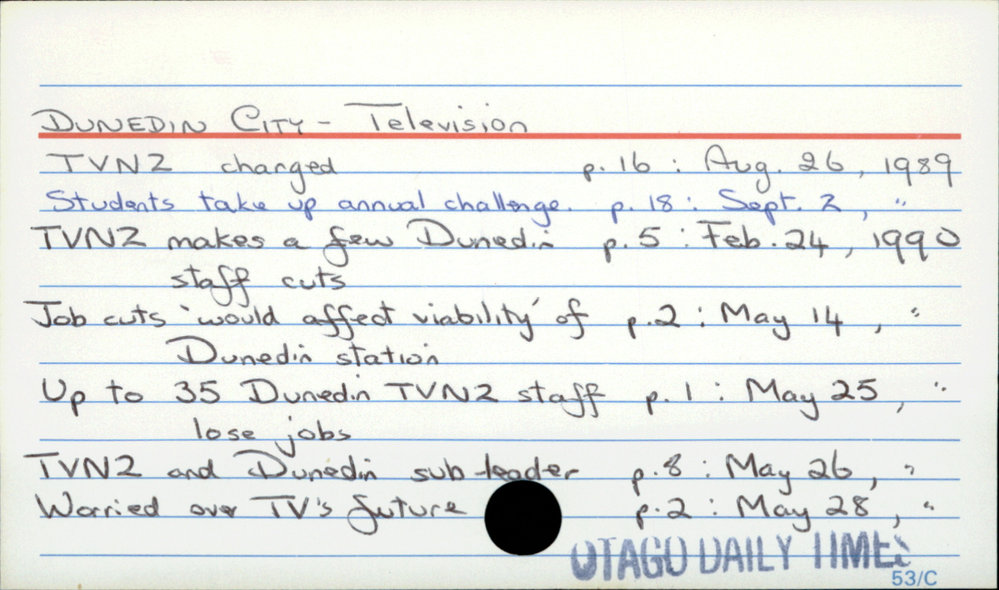 DUNEDIN CITY - Television
TVNZ charged p. 16 : Aug. 26, 1989
Students take up annual challenge. p. 18 : Sept. 2, "
TVNZ makes a few Dunedin p. 5 : Feb. 24, 1990
staff cuts
Job cuts 'would affect viability' of p. 2 : May 14, "
Dunedin station
Up to 35 Dunedin TVNZ staff p. 1 : May 25, "
lose jobs
TVNZ and Dunedin sub-leader p. 8 : May 26, "
Worried over TV's future p. 2 : May 28, "
OTAGO DAILY TIMES
53/C